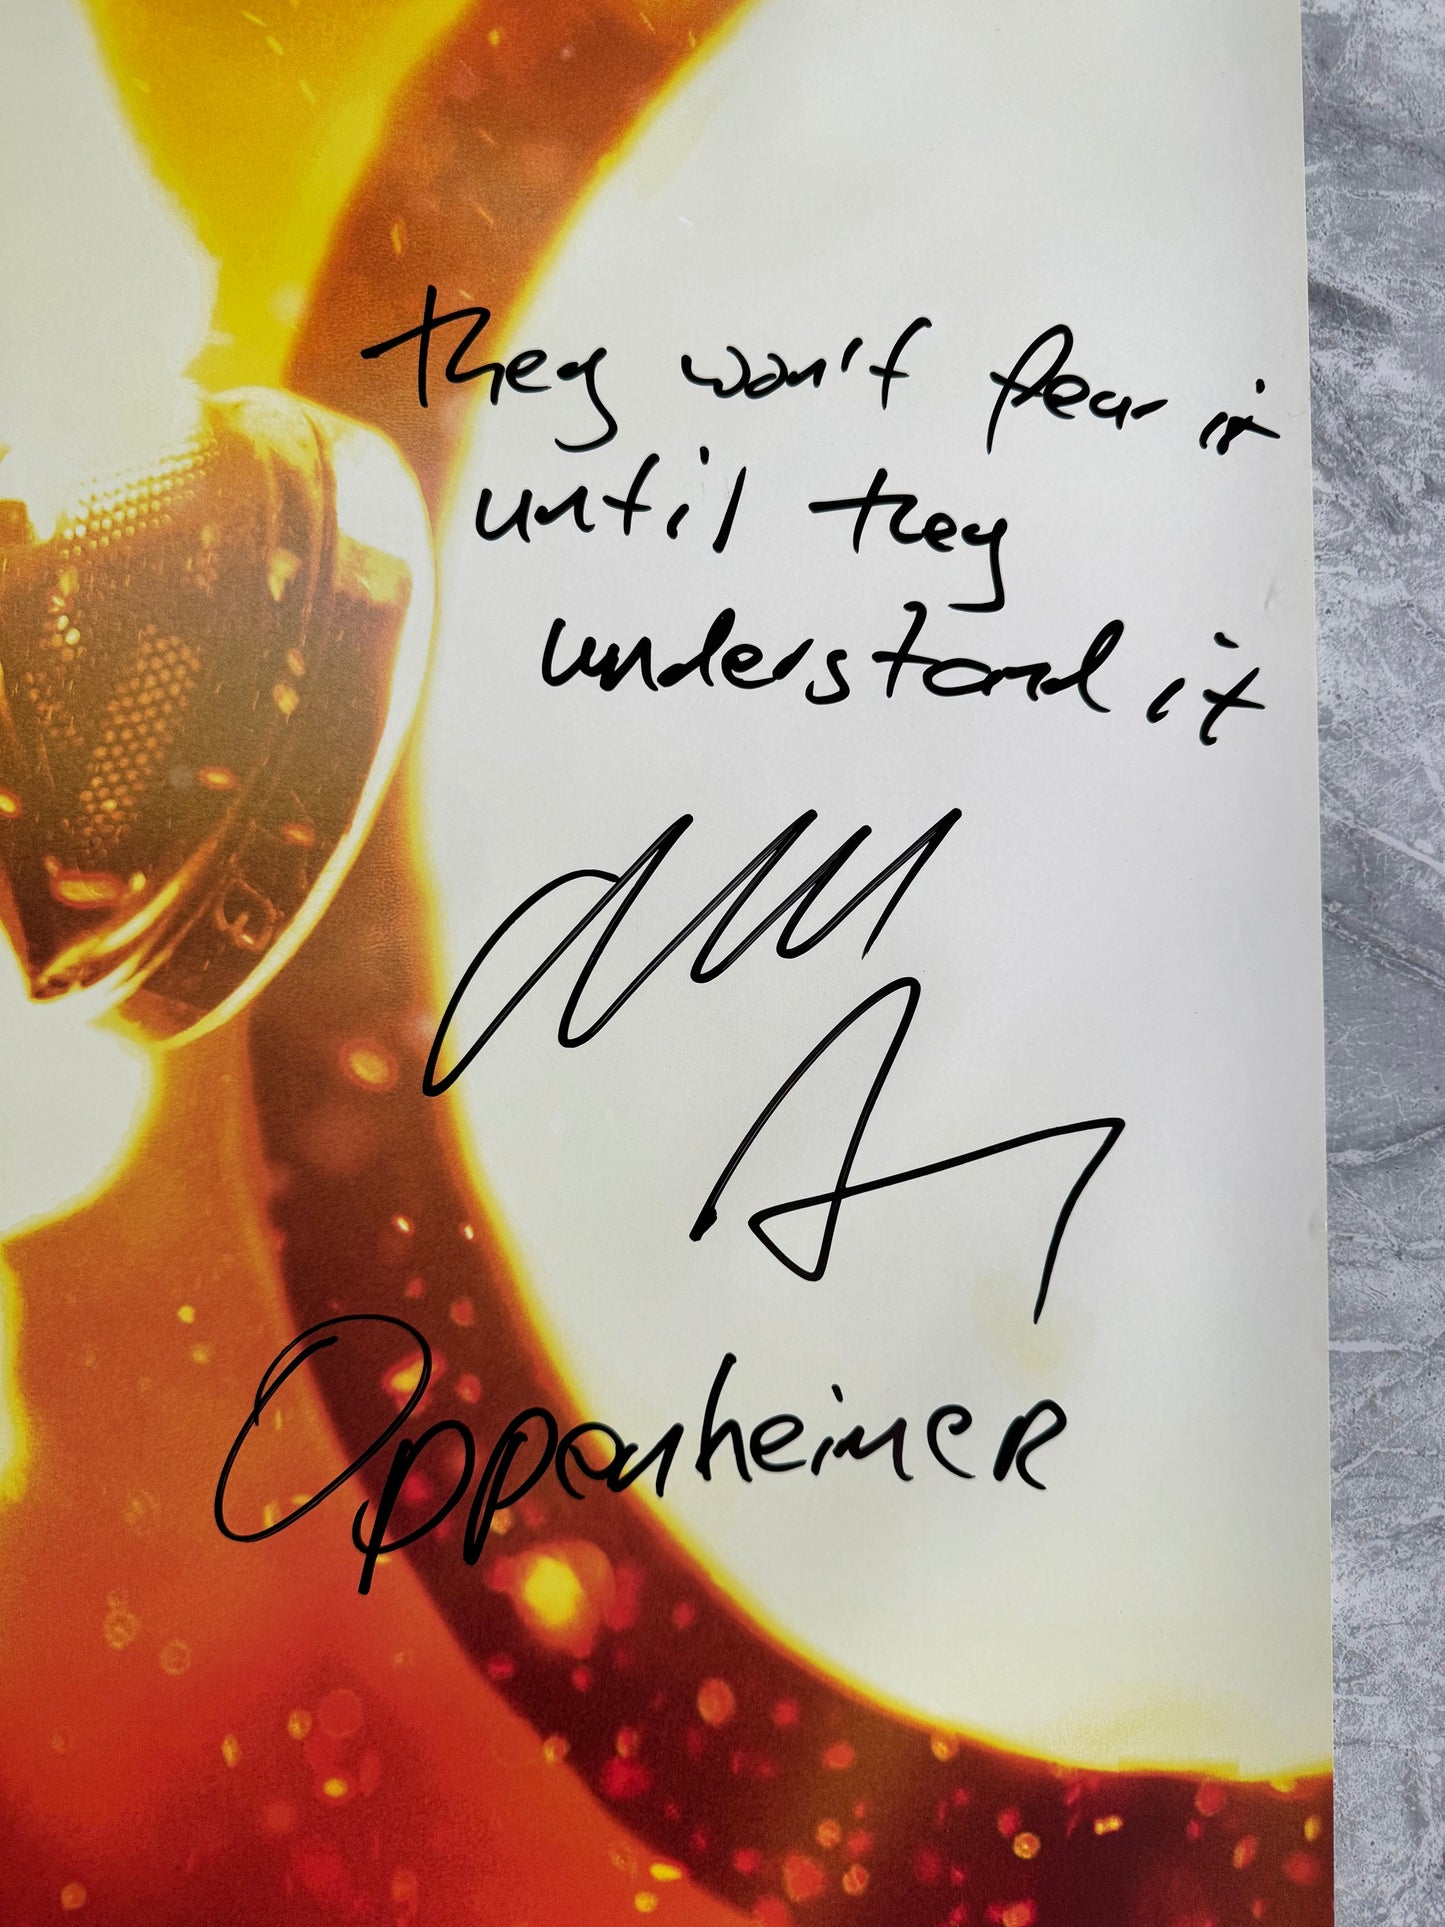 they won't fear it
until they
understand it
Oppenheimer